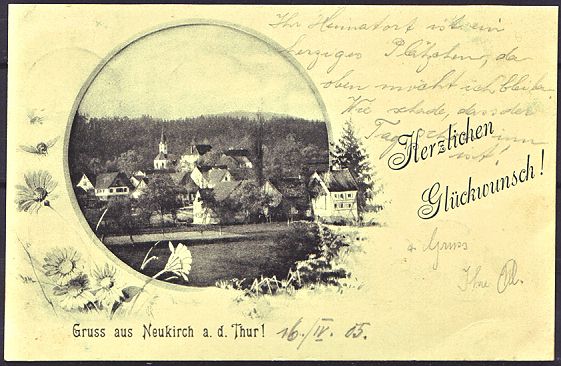 Ihr Heimatort ist ein
herziges Plätzchen, da
oben möcht ich bleiben.
Wie schade, dass der
Tag schon
ist!
Herzlichen
Glückwunsch!
Gruss
Ihre
Gruss aus Neukirch a. d. Thur! 16./IV. 05.